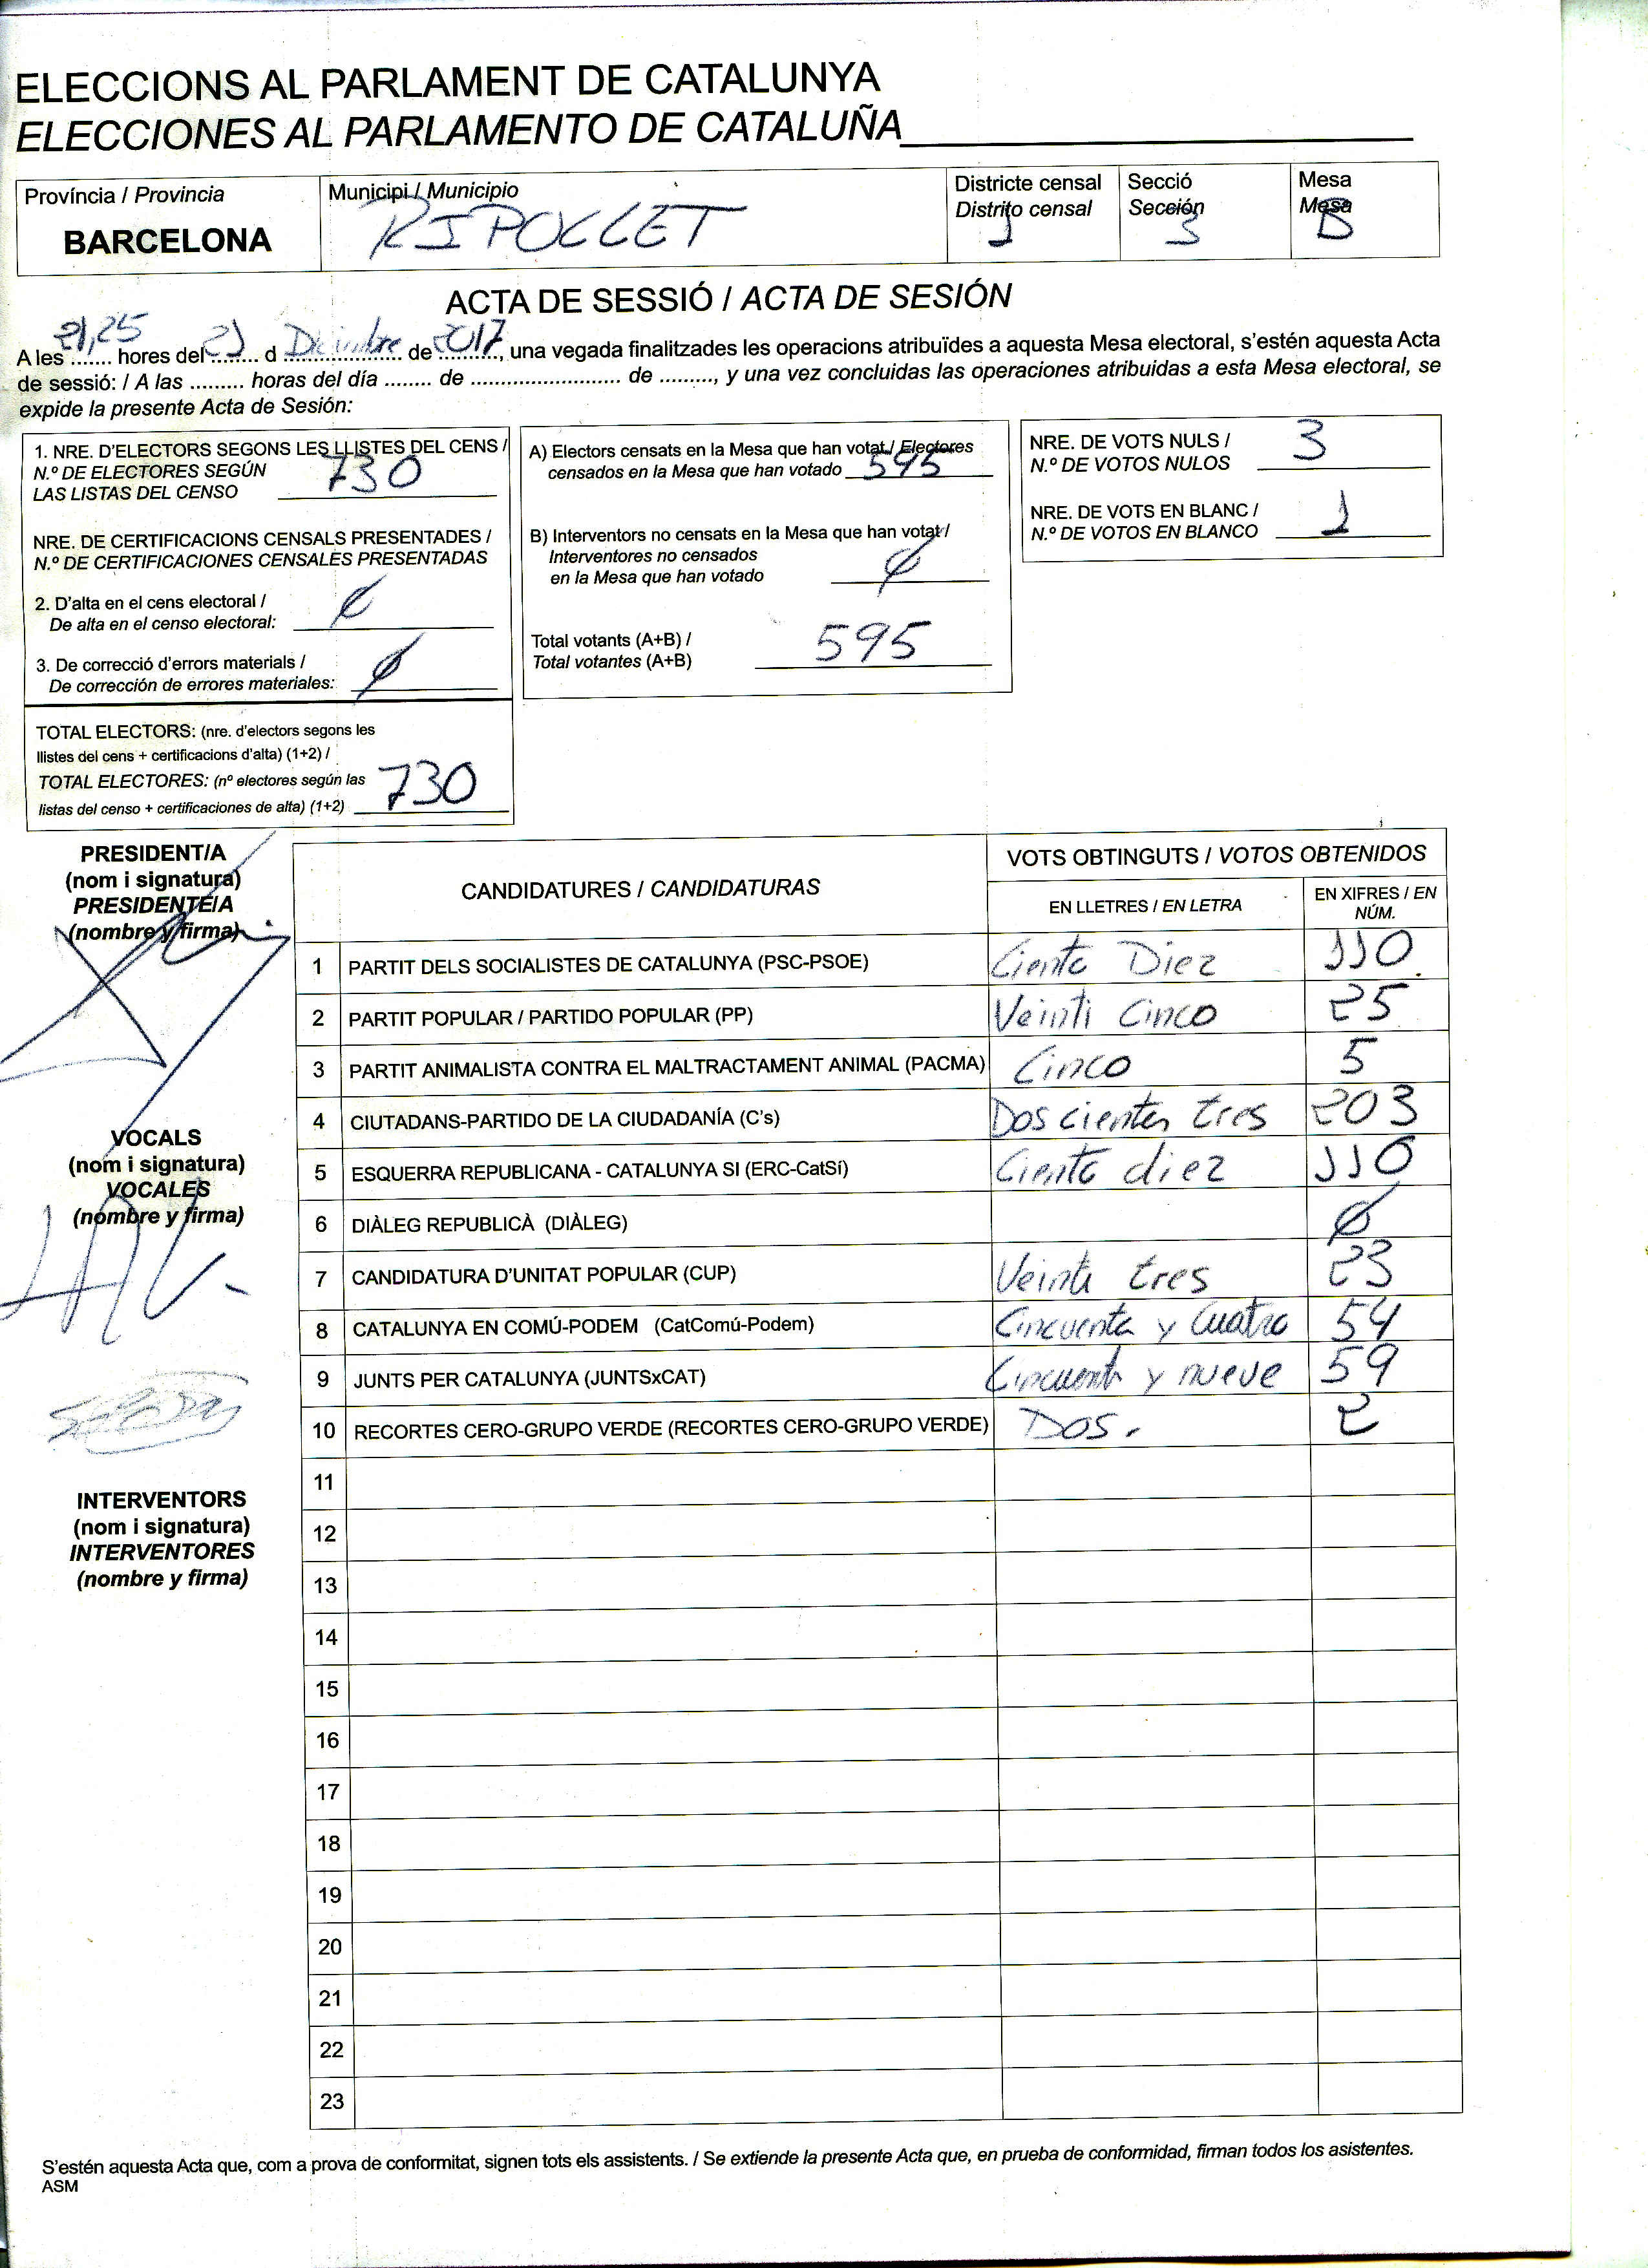 ELECCIONS AL PARLAMENT DE CATALUNYA
ELECCIONES AL PARLAMENTO DE CATALUÑA
Província / Provincia
BARCELONA
Municipi / Municipio
RIPOLLET
Districte censal
Distrito censal
1
Secció
Sección
3
Mesa
Mesa
B
ACTA DE SESSIÓ / ACTA DE SESIÓN
A les 21,25 hores del 21 d Diciembre de 2017, una vegada finalitzades les operacions atribuïdes a aquesta Mesa electoral, s'estén aquesta Acta
de sessió: / A las ......... horas del día ........ de ......................... de ........., y una vez concluidas las operaciones atribuidas a esta Mesa electoral, se
expide la presente Acta de Sesión:
1. NRE. D'ELECTORS SEGONS LES LLISTES DEL CENS /
N.º DE ELECTORES SEGÚN
LAS LISTAS DEL CENSO 730
NRE. DE CERTIFICACIONS CENSALS PRESENTADES /
N.º DE CERTIFICACIONES CENSALES PRESENTADAS
2. D'alta en el cens electoral /
De alta en el censo electoral: Ø
3. De correcció d'errors materials /
De corrección de errores materiales: Ø
TOTAL ELECTORS: (nre. d'electors segons les
llistes del cens + certificacions d'alta) (1+2) /
TOTAL ELECTORES: (nº electores según las
listas del censo + certificaciones de alta) (1+2) 730
A) Electors censats en la Mesa que han votat / Electores
censados en la Mesa que han votado 595
B) Interventors no censats en la Mesa que han votat /
Interventores no censados
en la Mesa que han votado Ø
Total votants (A+B) /
Total votantes (A+B) 595
NRE. DE VOTS NULS /
N.º DE VOTOS NULOS 3
NRE. DE VOTS EN BLANC /
N.º DE VOTOS EN BLANCO 1
PRESIDENT/A
(nom i signatura)
PRESIDENTE/A
(nombre y firma)
VOCALS
(nom i signatura)
VOCALES
(nombre y firma)
INTERVENTORS
(nom i signatura)
INTERVENTORES
(nombre y firma)
CANDIDATURES / CANDIDATURAS
VOTS OBTINGUTS / VOTOS OBTENIDOS
EN LLETRES / EN LETRA
EN XIFRES / EN
NÚM.
1 PARTIT DELS SOCIALISTES DE CATALUNYA (PSC-PSOE) Ciento Diez 110
2 PARTIT POPULAR / PARTIDO POPULAR (PP) Veinti Cinco 25
3 PARTIT ANIMALISTA CONTRA EL MALTRACTAMENT ANIMAL (PACMA) Cinco 5
4 CIUTADANS-PARTIDO DE LA CIUDADANÍA (C's) Dos cientos tres 203
5 ESQUERRA REPUBLICANA - CATALUNYA SI (ERC-CatSí) Ciento diez 110
6 DIÀLEG REPUBLICÀ (DIÀLEG) Ø
7 CANDIDATURA D'UNITAT POPULAR (CUP) Veinti tres 23
8 CATALUNYA EN COMÚ-PODEM (CatComú-Podem) Cincuenta y Cuatro 54
9 JUNTS PER CATALUNYA (JUNTSxCAT) Cincuenta y nueve 59
10 RECORTES CERO-GRUPO VERDE (RECORTES CERO-GRUPO VERDE) Dos. 2
11
12
13
14
15
16
17
18
19
20
21
22
23
S'estén aquesta Acta que, com a prova de conformitat, signen tots els assistents. / Se extiende la presente Acta que, en prueba de conformidad, firman todos los asistentes.
ASM